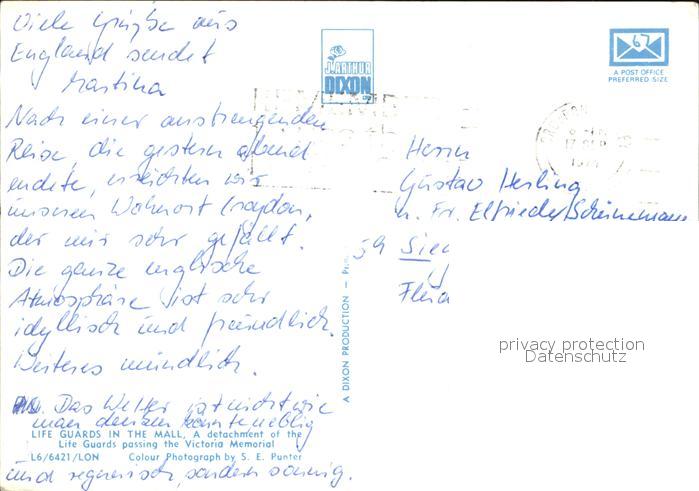 Viele Grüße aus
England sendet
Martina
Nach einer anstrengenden
Reise, die gestern abend
endete, erreichten wir
unseren Wohnort Croydon,
der mir sehr gefällt.
Die ganze englische
Atmosphäre ist sehr
idyllisch und freundlich.
Weiteres mündlich.
Das Wetter ist nicht wie
man denken könnte neblig
und regnerisch, sondern sonnig.
LIFE GUARDS IN THE MALL, A detachment of the
Life Guards passing the Victoria Memorial
L6/6421/LON Colour Photograph by S. E. Punter
J. ARTHUR
DIXON
A DIXON PRODUCTION —
67
A POST OFFICE
PREFERRED SIZE
Herrn
Gustav Herling
u. Fr. Elfriede Scheinemann
59 Sieg
privacy protection
Datenschutz